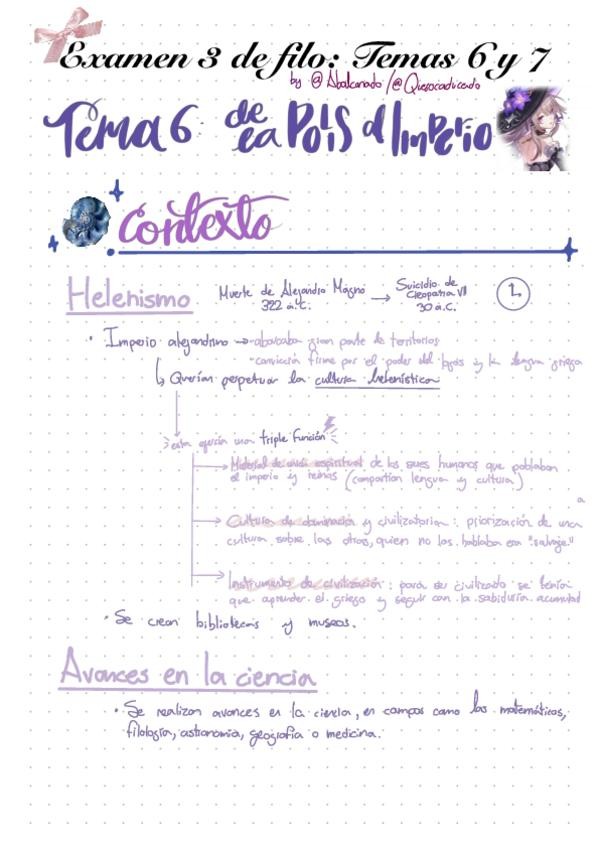 Examen 3 de filo: Temas 6 y 7
by @Abalcanado/@Quesocaducado
Tema 6: de la Polis al Imperio
Contexto
Helenismo
Muerte de Alejandro Magno → Suicidio de Cleopatra VII
322 a.C. 30 a.C.
• Imperio alejandrino → -abarcaba gran parte de territorios
-convicción firme por el poder del logos y la lengua griega
↳ Querían perpetuar la cultura helenística
esta ejercía una triple función
Material de unidad espiritual de los seres humanos que poblaban
el imperio y reinas (compartían lengua y cultura)
a
Cultura de dominación y civilizatoria: priorización de una
cultura sobre las otras, quien no las hablaba era "salvaje"
Instrumento de civilización: para ser civilizado se tenía
que aprender el griego y seguir con la sabiduría acumulad
• Se crean bibliotecas y museos.
Avances en la ciencia
• Se realizan avances en la ciencia, en campos como las matemáticas,
filología, astronomía, geografía o medicina.